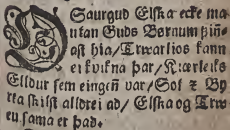 OSaurgud Elska ecke ma
utan Guds Børnum fiñ⸗
ast hia / Trwarlios kann
ei kvikna þar / Kiærleiks
Elldur sem eingeñ var / Sol z By
rta skilst alldrei ad / Elska og Trw⸗
en sama er það.